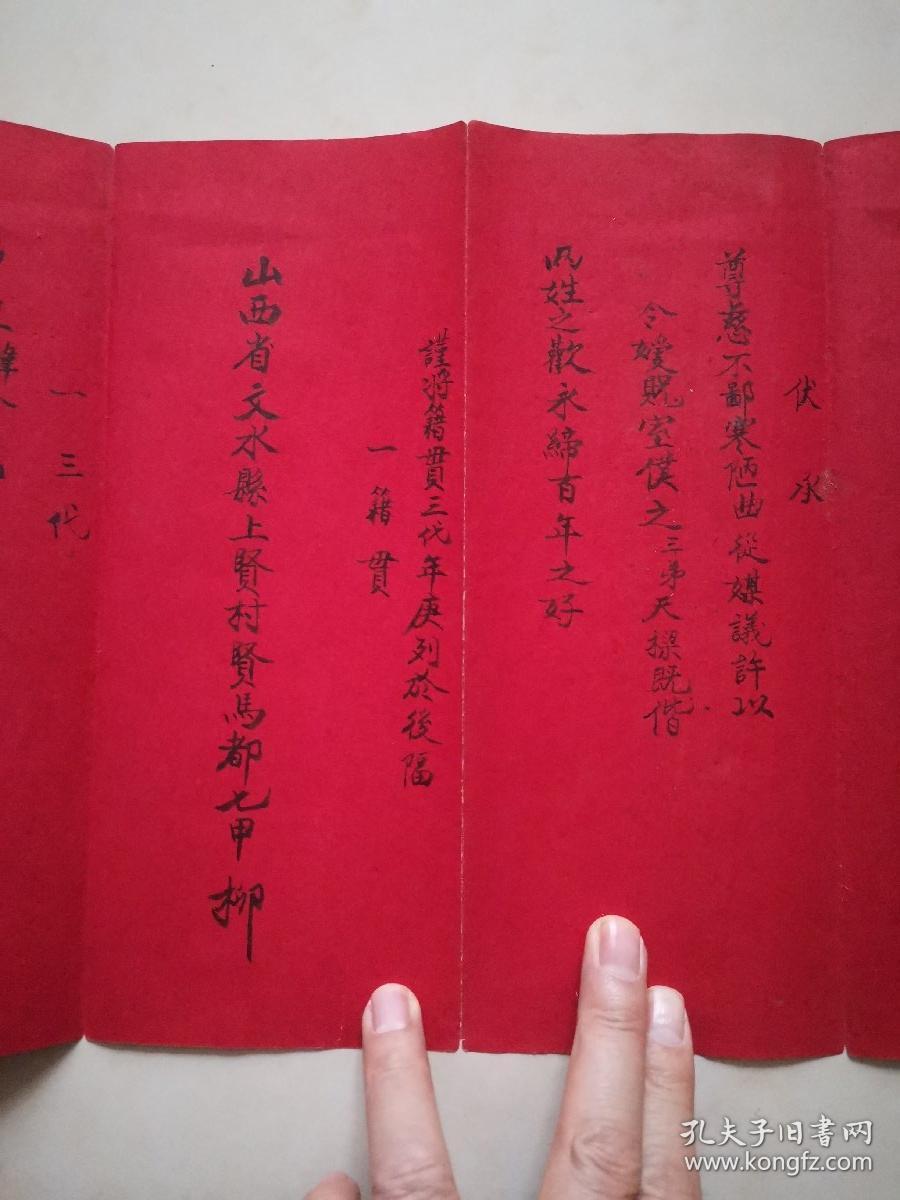 伏承
尊慈不鄙寒陋曲從媒議許以
令嬡貺室僕之三弟天操既偕
二姓之歡永締百年之好
謹將籍貫三代年庚列於後幅
一籍貫
山西省文水縣上賢村賢馬都七甲 柳
一三代
孔夫子旧书网
www.kongfz.com